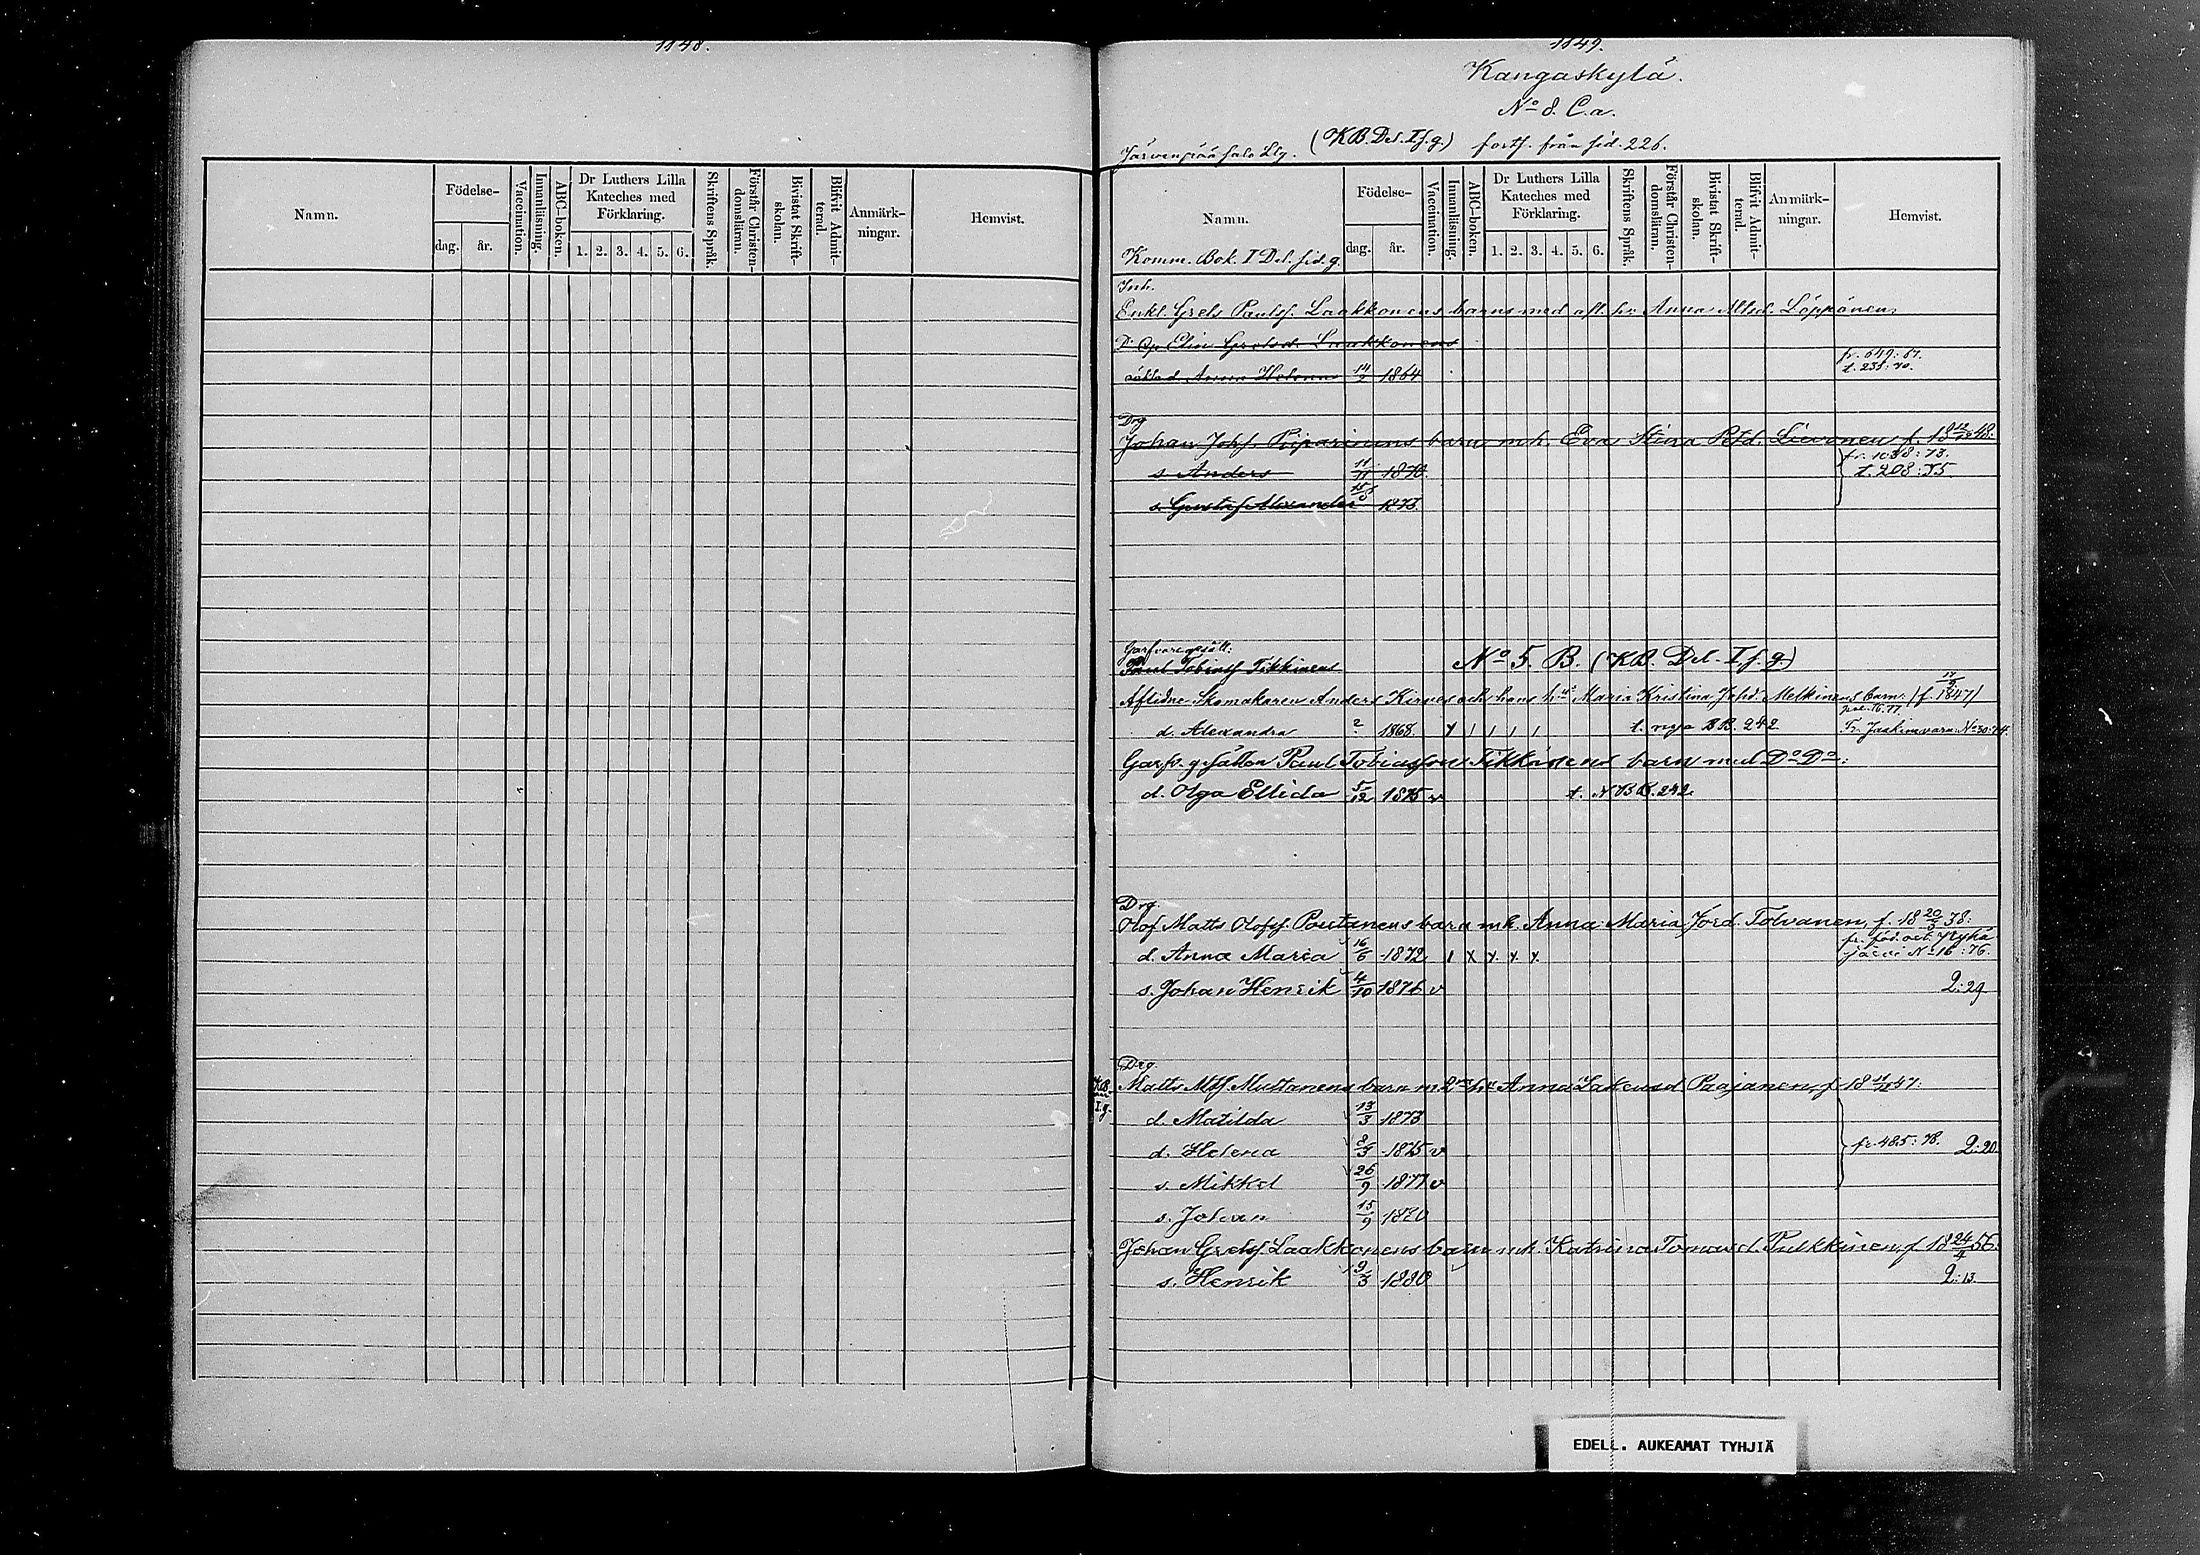 1148.
Namn.
Födelse-
dag.
år.
Vaccination.
Innanläsning.
ABC-boken.
Dr Luthers Lilla
Kateches med
Förklaring.
1. 2. 3. 4. 5. 6.
Skriftens Språk.
Förstår Christen-
domsläran.
Bivistat Skrift-
skolan.
Blifvit Admit-
terad.
Anmärk-
ningar.
Hemvist.
1149.
Kangaskylä.
No 8. C.a.
(KB. Del. I f. g.) forts. från sid. 226.
Järvenpää
Namn.
Komm. Bok. I Del. sid. g.
Födelse-
dag.
år.
Vaccination.
Innanläsning.
ABC-boken.
Dr Luthers Lilla
Kateches med
Förklaring.
1. 2. 3. 4. 5. 6.
Skriftens Språk.
Förstår Christen-
domsläran.
Bivistat Skrift-
skolan.
Blifvit Admit-
terad.
Anmärk-
ningar.
Hemvist.
Inh.
Enkl. Grels Paulsf. Laakkonens barns med afl. hu Anna Löppönen
Elin Grelsd. Laakkonens
Anna Helena 14/2 1864 fr. 649:67.
t. 235:70.
Drg
Johan Johsf. Piiparinens barn mh. Eva Stina Petd. Sievonen f.
s. Anders 11/11 1870 fr. 1038:73.
t. 208:75.
s. Gustaf Alexander 1873
Garfvaregesäll:
Paul Tobiasf Tikkinens
No 5. B. (KB. Del. I. f. g.)
Aflidne Skomakaren Anders Kirves och hans Maria Kristina Johd. Melkinens barn: (f. 1847)
d. Alexandra ? 1868. t. nya BB. 242
Garfv. gesällen Paul Tobiasson Tikkanens barn med Do Do:
d. Olga Ellida 5/12 1875 v t. NBB. 242
Drg.
Olof Matts Olofsf. Poutanens barn mh. Anna Maria Jörd. Tolvanen, f. 18 20/3 38:
d. Anna Maria 16/6 1872
järvi No 16:76.
s. Johan Henrik 4/10 1876 v 2:29
Drg.
Matts Mtsf. Mustanens barn m. 2 hu Anna Zakeusd Paajanen, f. 18 47:
d. Matilda 13/3 1873
d. Helena 8/3 1875 v fr. 485:78. 2:20.
s. Mikkel 26/9 1877 v
s. Johan 15/9 1880
Johan Grelsf. Laakkonens barn mh. Katrina Tomasd. Pulkkinen, f. 18 24/4 56.
s. Henrik 9/3 1880 2:13.
EDELL. AUKEAMAT TYHJIÄ